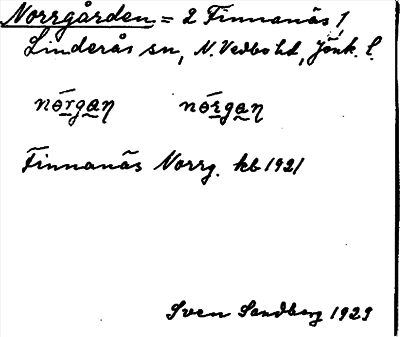 Norrgården = 2 Finnanäs 1
Linderås sn, N. Vedbo hd, Jönk. l.
nórgaŋ nórgaŋ
Finnanäs Norrg. kb 1921
Sven Sandberg 1929